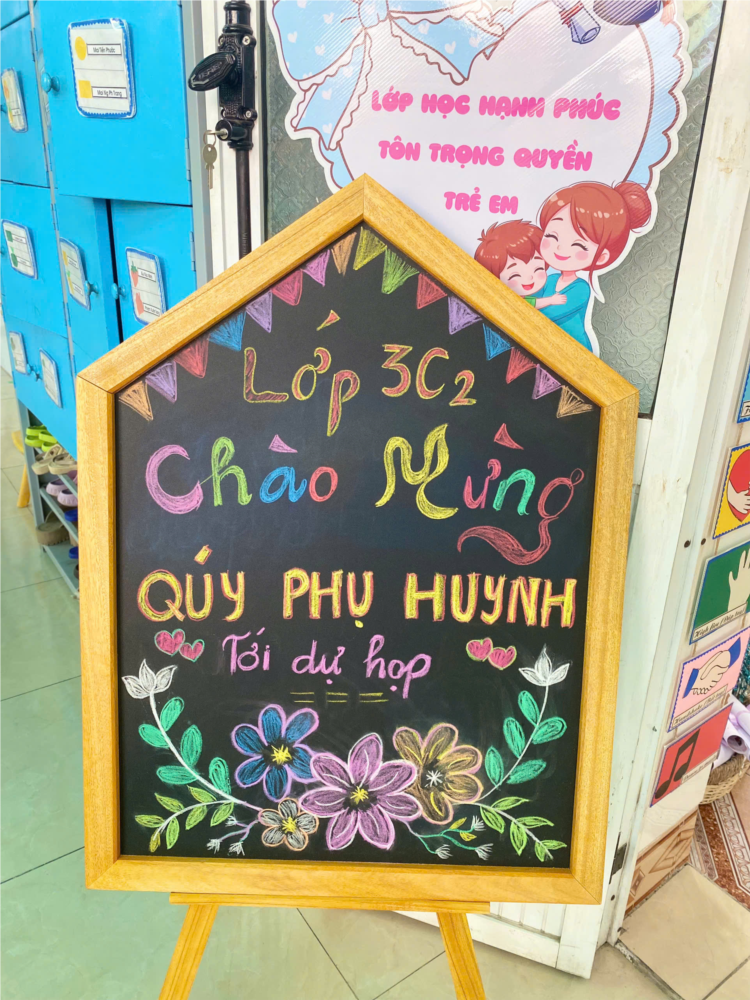 LỚP HỌC HẠNH PHÚC
TÔN TRỌNG QUYỀN
TRẺ EM
Lớp 3C2
Chào Mừng
QÚY PHỤ HUYNH
Tới dự họp